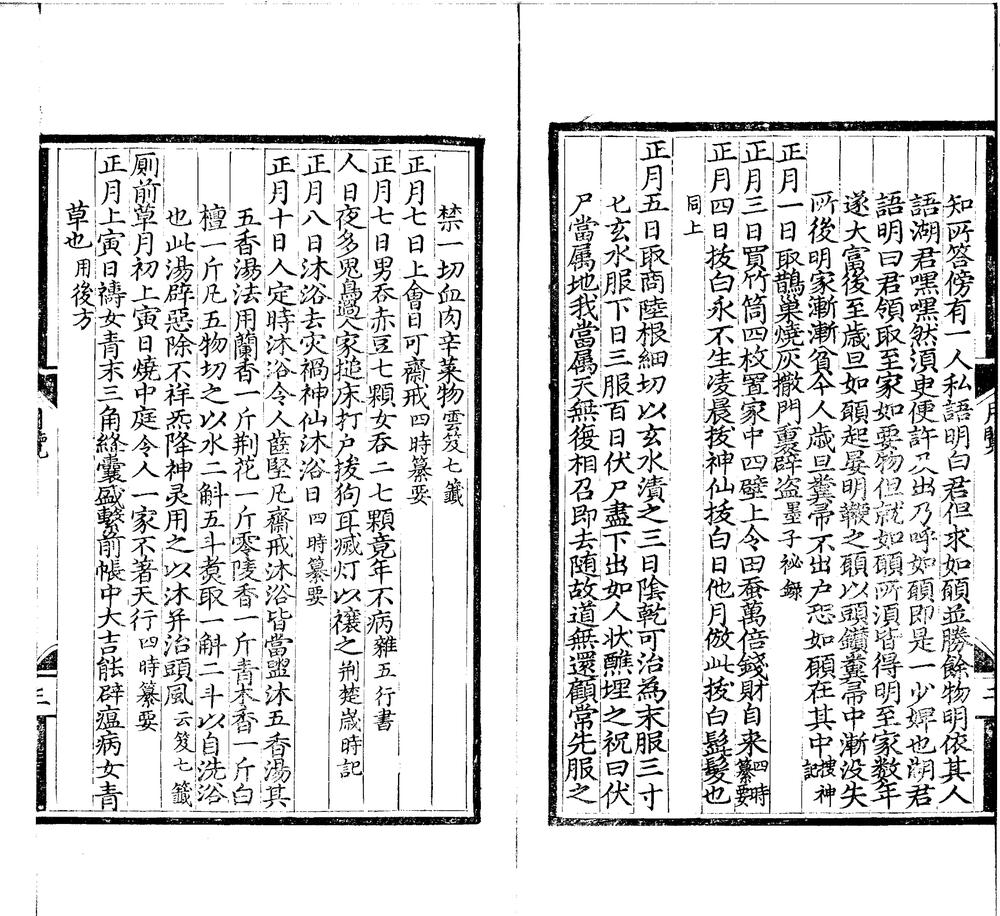 知所答傍有一人私語明白君但求如願並勝餘物明依其人
語湖君嘿嘿然須臾便許及出乃呼如願即是一少婢也湖君
語明曰君領取至家如要物但就如願所須皆得明至家数年
遂大富後至歲旦如願起晏明鞭之願以頭鑽糞帚中漸没失
所後明家漸漸貧今人歲旦糞帚不出户恐如願在其中搜神記
正月一日取鵲巢燒灰撒門裏辟盗墨子祕錄
正月三日買竹筒四枚置家中四壁上令田蚕萬倍錢財自来四時纂要
正月四日拔白永不生凌晨拔神仙拔白日他月倣此拔白髭髮也
同上
正月五日取商陸根細切以玄水漬之三日陰乾可治為末服三寸
匕玄水服下日三服百日伏尸盡下出如人状醮埋之祝曰伏
尸當属地我當属天無復相召即去随故道無還顧常先服之
禁一切血肉辛菜物雲笈七籤
正月七日上會日可齋戒四時纂要
正月七日男吞赤豆七顆女吞二七顆竟年不病雜五行書
人日夜多鬼鳥過人家搥床打户拔狗耳滅灯以禳之荆楚歲時記
正月八日沐浴去灾禍神仙沐浴日四時纂要
正月十日人定時沐浴令人齒堅凡齋戒沐浴皆當盥沐五香湯其
五香湯法用蘭香一斤荆花一斤零陵香一斤青木香一斤白
檀一斤凡五物切之以水二斛五斗煑取一斛二斗以自洗浴
也此湯辟惡除不祥炁降神灵用之以沐并治頭風云笈七籤
厠前草月初上寅日燒中庭令人一家不著天行四時纂要
正月上寅日擣女青末三角絳囊盛繫前帳中大吉能辟瘟病女青
草也用後方
三